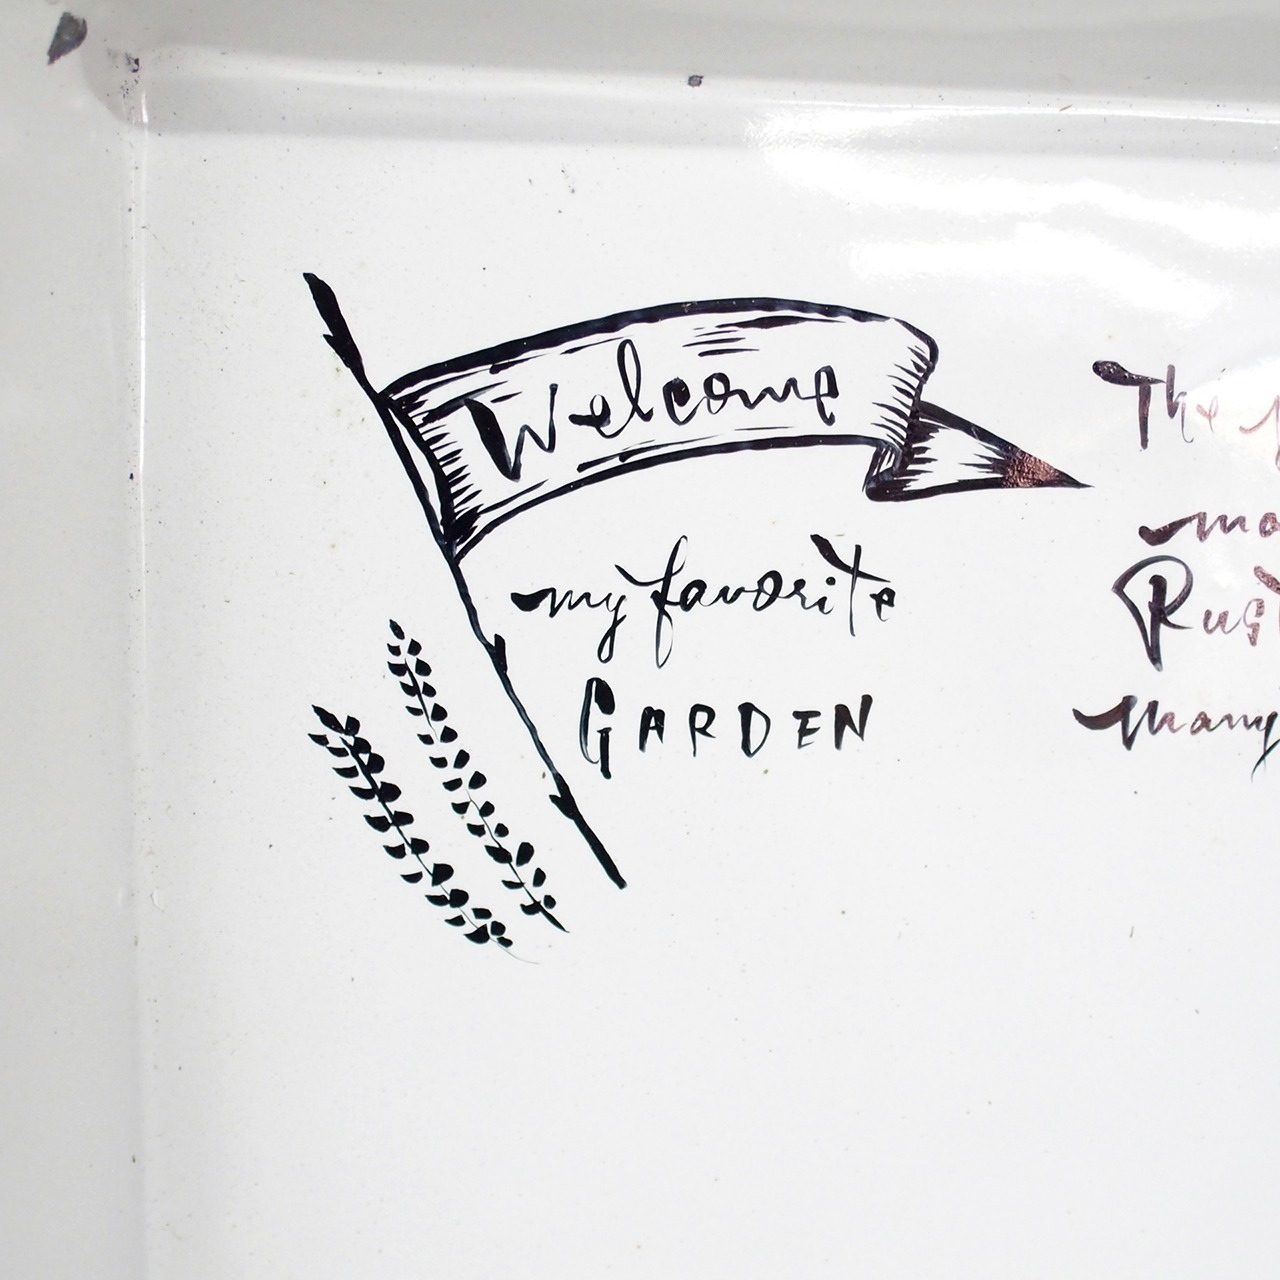 Welcome
my favorite
GARDEN
The
many